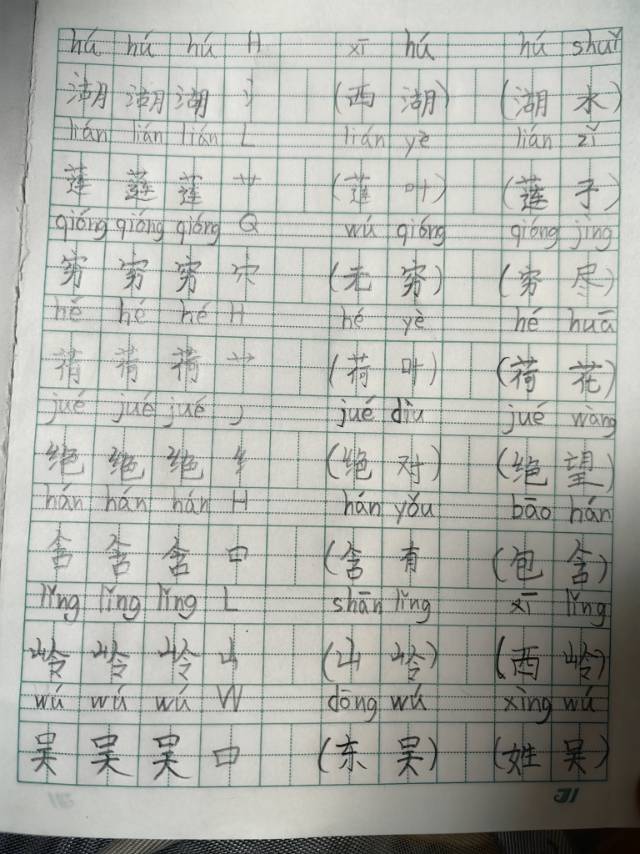 hú hú hú H xī hú hú shuǐ
湖 湖 湖 氵 (西 湖) (湖 水)
lián lián lián L lián yè lián zǐ
莲 莲 莲 艹 (莲 叶) (莲 子)
qióng qióng qióng Q wú qióng qióng jìng
穷 穷 穷 穴 (无 穷) (穷 尽)
hé hé hé H hé yè hé huā
荷 荷 荷 艹 (荷 叶) (荷 花)
jué jué jué J jué dìu jué wàng
绝 绝 绝 纟 (绝 对) (绝 望)
hán hán hán H hán yǒu bāo hán
含 含 含 口 (含 有) (包 含)
lǐng lǐng lǐng L shān lǐng xī lǐng
岭 岭 岭 山 (山 岭) (西 岭)
wú wú wú W dōng wú xìng wú
吴 吴 吴 口 (东 吴) (姓 吴)